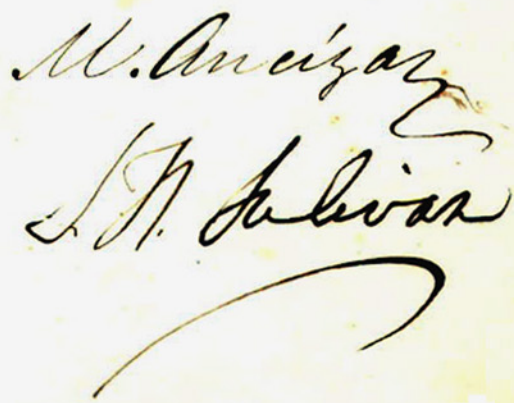 M. Ancízar
S. N. Salivan